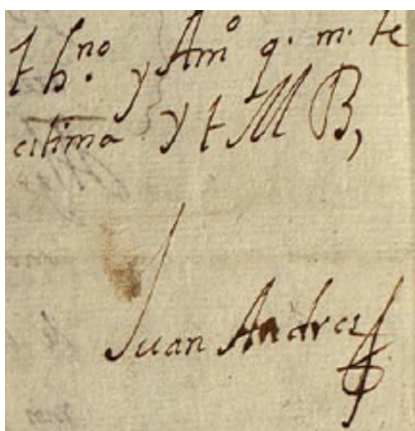 t hno. y Amo q. m. te
estima y t M B,
Juan Andres